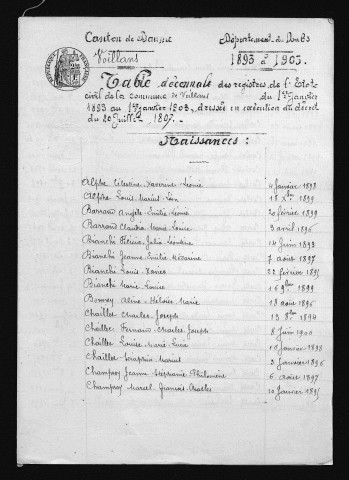 Canton de Baume
Département du Doubs
Voillans
1893 à 1903.
RÉPUBLIQUE FRANÇAISE
Table décennale des registres de l'Etat
civil de la commune de Voillans du 1er Janvier
1893 au 1er Janvier 1903, dressée en exécution du décret
du 20 Juillet 1807.
Naissances :
Alphe Célestine Léonie 4 Janvier 1898
Alphe Louis Marius Léon 18 Xbre 1899
Barrand Angèle Emilie Léonie 20 février 1899
Barrand Claudia Marie Louise 3 avril 1896
Bianchi Félicie Julia Léontine 14 Juin 1893
Bianchi Jeanne Emilie 7 août 1897
Bianchi Louis Xavier 22 février 1895
Bianchi Marie Louise 16 9bre 1899
Bonvey Aline Héloïse Marie 18 août 1896
Chaillet Charles Joseph 13 8bre 1894
Chaillet Fernand Charles Joseph 8 Juin 1900
Chaillet Louise Marie 10 janvier 1898
Chaillet Séraphin Marcel 3 Janvier 1896
Champroy Jeanne Stéphanie Philomène 6 Août 1897
Champroy Marcel Francis Charles 20 Janvier 1895